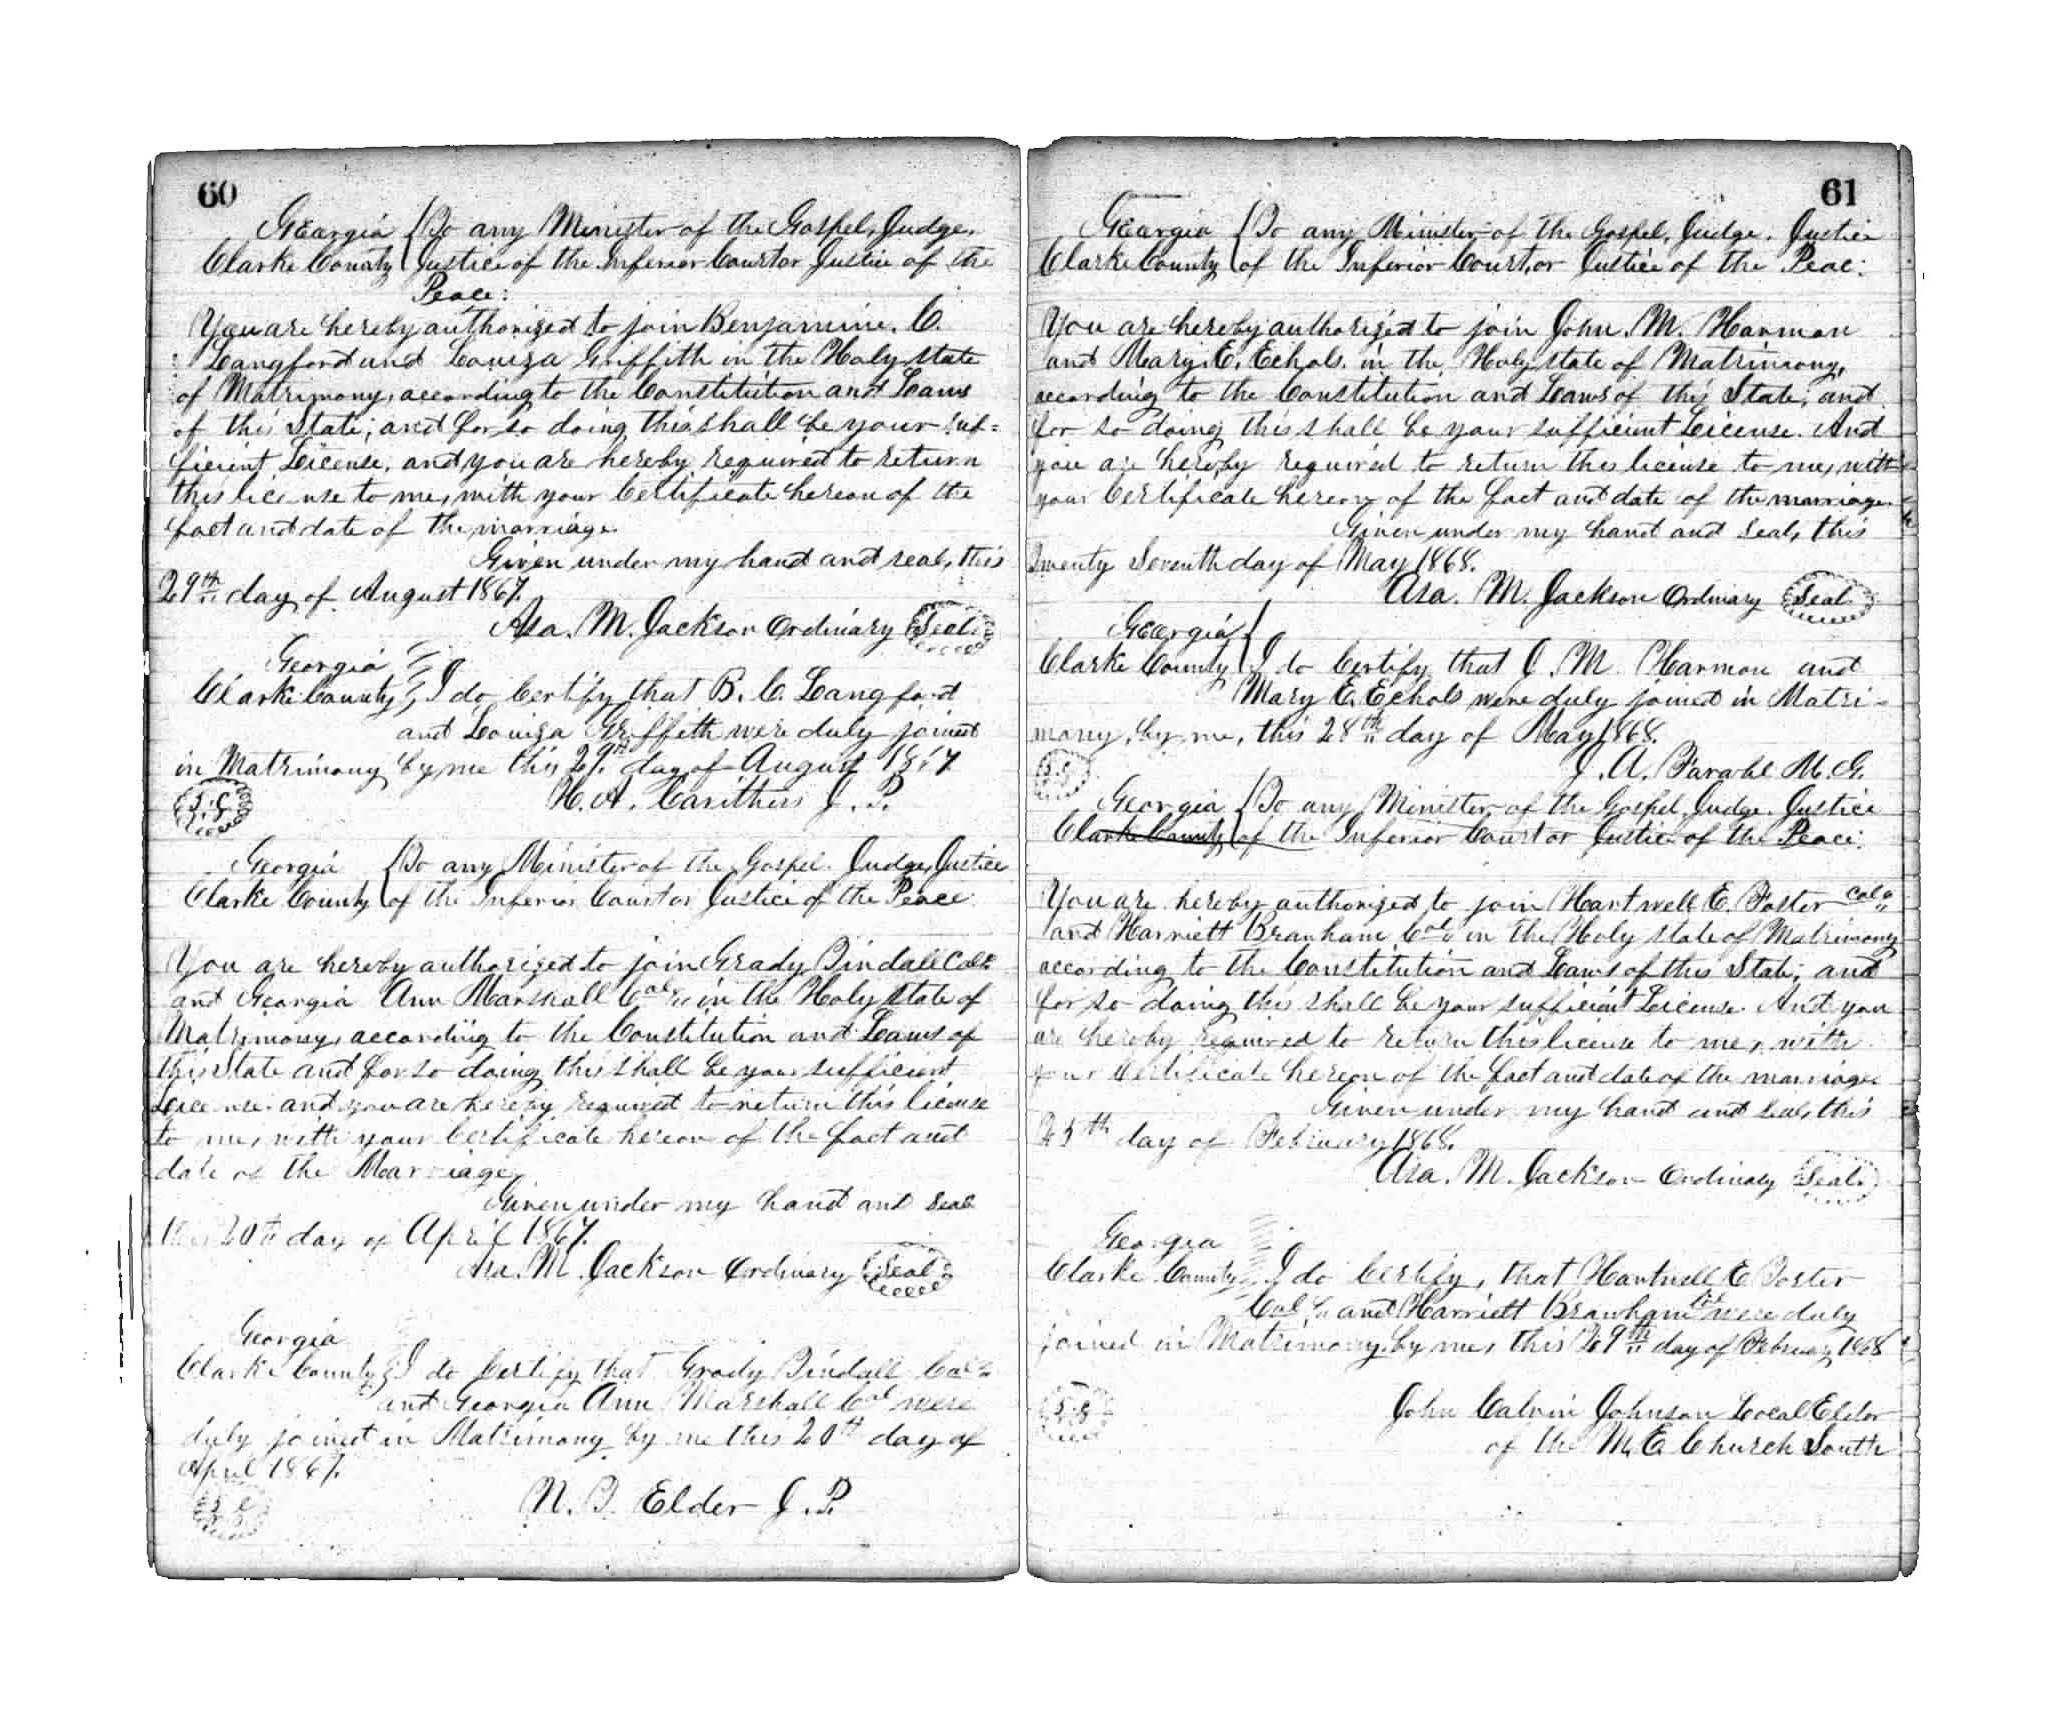 60
Georgia { To any Minister of the Gospel, Judge,
Clarke County { Justice of the Inferior Court or Justice of the
Peace:
You are hereby authorized to join Benjamine. C.
Langford and Louiza Griffith in the Holy state
of Matrimony, according to the Constitution and Laws
of this State; and for so doing this shall be your suf=
ficient License, and you are hereby required to return
this license to me, with your Certificate hereon of the
fact and date of the marriage.
Given under my hand and seal, this
29th day of August 1867.
Asa. M. Jackson Ordinary Seal.
Georgia
Clarke County } I do Certify that B. C. Langford
and Louiza Griffith were duly joined
in Matrimony by me this 29th day of August 1867
H. A. Carithers J. P.
Georgia { To any Minister of the Gospel. Judge, Justice
Clarke County { of the Inferior Court or Justice of the Peace:
You are hereby authorized to join Grady Tindall Col"
and Georgia Ann Marshall Col" in the Holy state of
Matrimony, according to the Constitution and Laws of
this State and for so doing this shall be your sufficient
License. and you are hereby required to return this license
to me, with your Certificate hereon of the fact and
date of the Marriage,
Given under my hand and seal
this 20th day of April 1867.
Asa. M. Jackson Ordinary Seal
Georgia
Clarke County } I do Certify that Grady Tindall Col"
and Georgia Ann Marshall Col were
duly joined in Matrimony by me this 20th day of
April 1867.
N. T. Elder J. P.
61
Georgia { To any Minister of the Gospel, Judge. Justice
Clarke County { of the Inferior Court, or Justice of the Peac:
You are hereby authorized to join John. M. Harmon
and Mary. E. Echols. in the Holy state of Matrimony,
according to the Constitution and Laws of this State; and
for so doing this shall be your sufficient License. And
you are hereby required to return this license to me, with
your Certificate hereon of the fact and date of the marriage.
Given under my hand and seal, this
Twenty Seventh day of May 1868.
Asa. M. Jackson Ordinary Seal.
Georgia }
Clarke County } I do Certify that J. M. Harmon and
Mary E. Echols were duly joined in Matri-
mony, by me, this 28th day of May 1868.
J. A. M. G.
Georgia { To any Minister of the Gospel Judge. Justice
Clarke County { of the Inferior Court or Justice of the Peace:
You are hereby authorized to join Hartwell E. Foster Col"
and Harriett Branham Col" in the Holy state of Matrimony
according to the Constitution and Laws of this State; and
for so doing this shall be your sufficient License. And you
are hereby required to return this license to me, with
your Certificate hereon of the fact and date of the marriage.
Given under my hand and seal, this
25th day of February 1868.
Asa. M. Jackson Ordinary Seal.
Georgia
Clarke County } I do Certify, that Hartwell E Foster
Col" and Harriett Branham Col were duly
joined in Matrimony by me, this 29th day of February 1868
John Calvin Johnson Local Elder
of the M. E. Church South